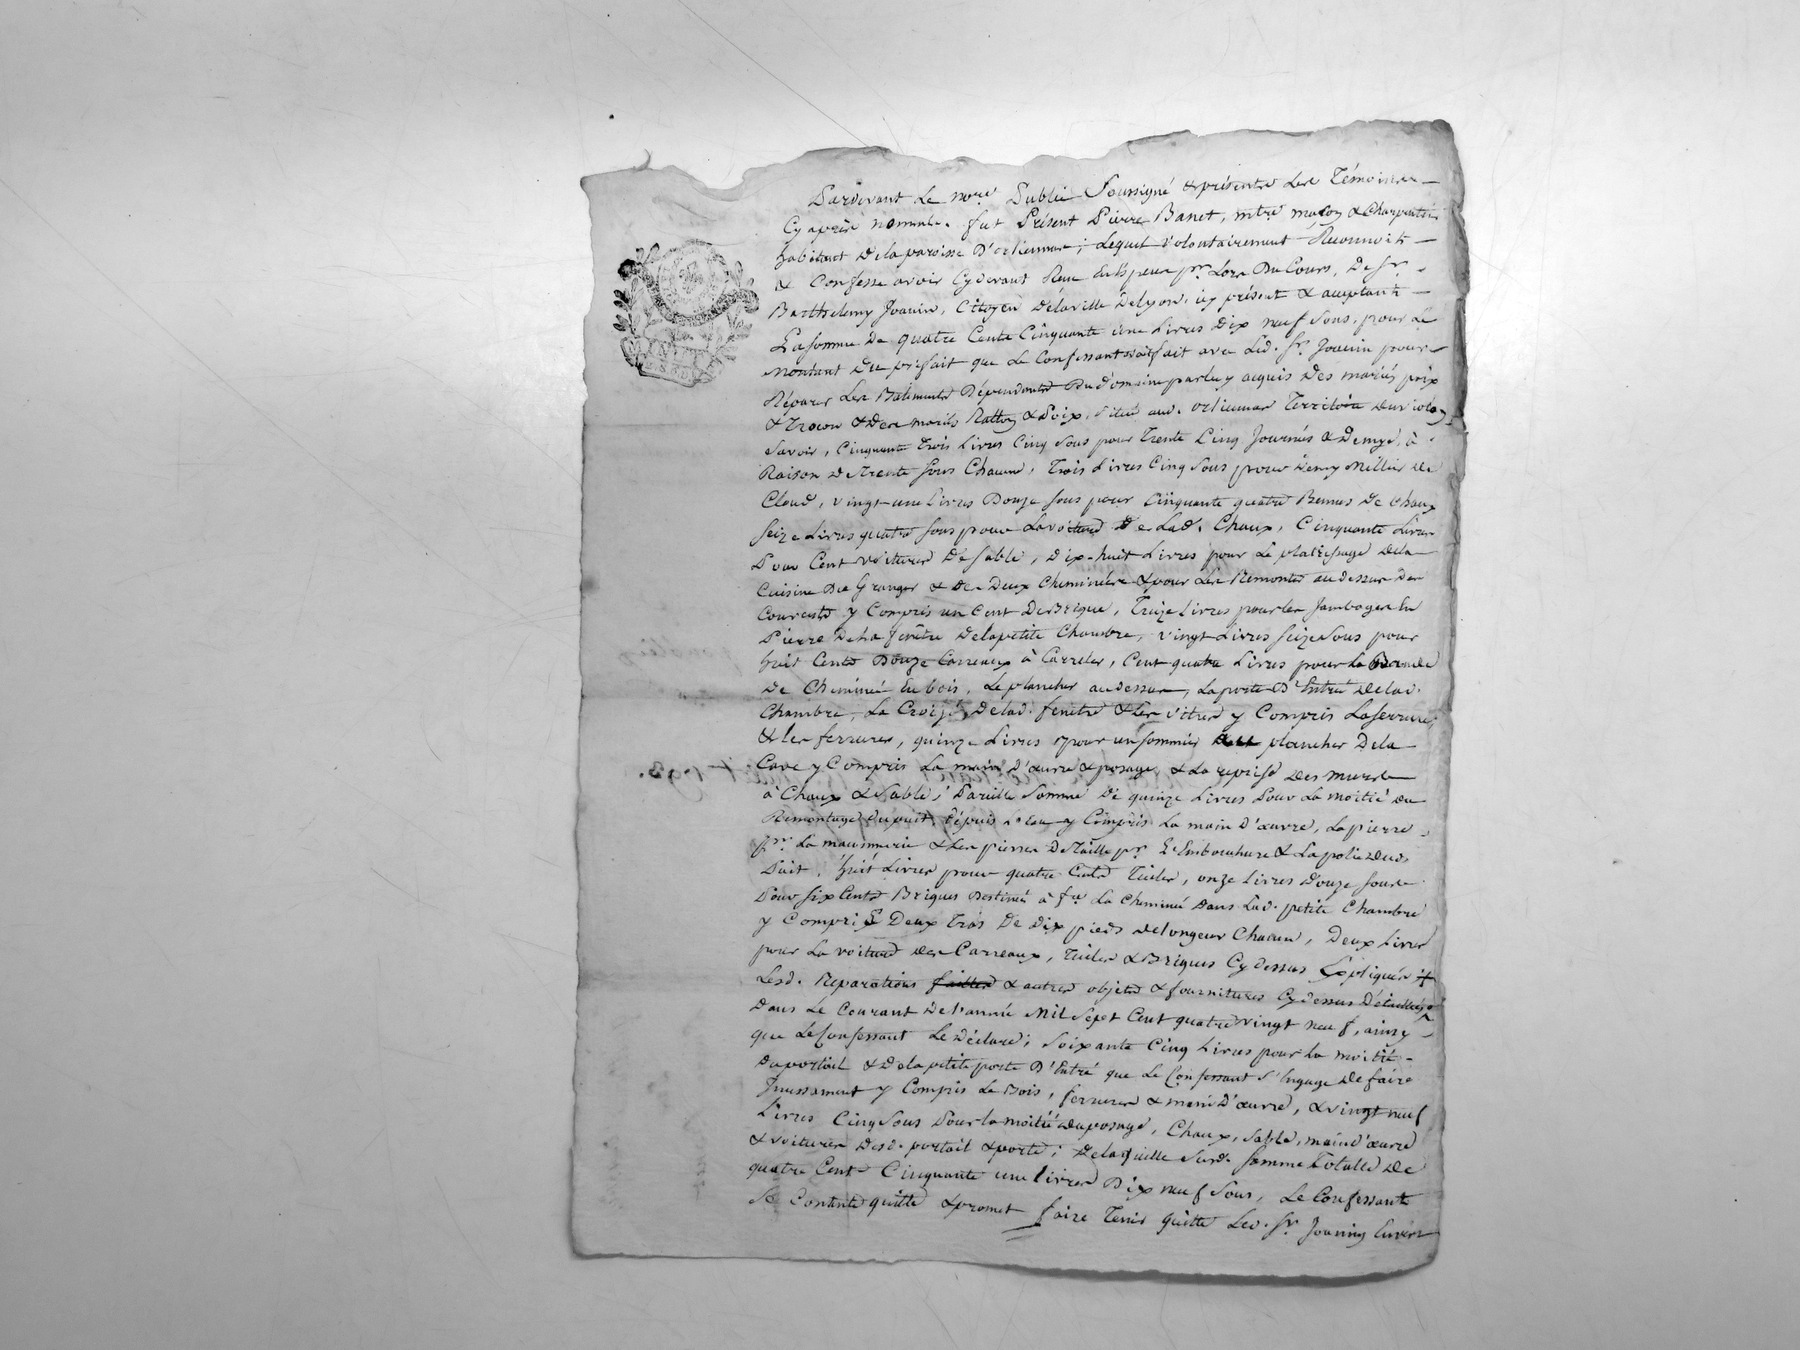 Pardevant Le nore Public Soussigné & présents Les Témoins
Cy après nommés. fut Présent Pierre Banet, mtre maçon & Charpentier
habitant De la paroisse D'orlienas; Lequel volontairement Reconnoit
& Confesse avoir Cydevant Reçu En Espèces pr. Lors Du Cours, De Sr.
Barthelemy Joanin, Citoyen De la ville De Lyon, icy présent & acceptant
La somme De quatre Cents Cinquante une Livres Dix neuf Sous, pour Le
Montant Du prifait que Le Confessant avoit fait avec Led. Sr. Joanin pour
Réparer Les Batiments Dépendants Du Domaine par luy acquis Des mariés
& Des mariés & Situé aud. orlienas Territoire
Savoir, Cinquante trois Livres Cinq Sous pour Trente Cinq Journés & Demye, à
Raison De Trente Sous Chacune, Trois Livres Cinq Sous pour Demy Millier De
Cloud, vingt une Livres Douze Sous pour Cinquante quatre Bennes De Chaux
Seize Livres quatre Sous pour La voiture De Lad. Chaux, Cinquante Livres
Pour Cent voitures De Sable, Dix-huit Livres pour Le platrissage De la
Cuisine Du Granger & De Deux Cheminées & pour Les Remonter au Dessus Des
Couverts y Compris un Cent De Brique, Treize Livres pour les Jambages En
Pierre De la fenêtre De la petite Chambre, vingt Livres Seize Sous pour
huit Cents Douze Carreaux à Carreler, Cent quatre Livres pour La
De Cheminée En bois, Le plancher au dessus, La porte D'Entrée De lad.
Chambre, La Croizé De lad. fenêtre & Les vitres y Compris La Serrure,
& les ferrures, quinze Livres pour un Sommier au plancher De la
Cave y Compris La main D'œuvre & posage, & La reprise Des murs
à Chaux & Sable; Pareille Somme De quinze Livres Pour La moitié du
Remontage Du puit, Depuis L'eau y Compris La main D'œuvre, La pierre
pr. La maçonnerie & Les pierres De Taille pr. L'Embouchure & La polie Dud.
Puit, huit Livres pour quatre Cents Tuiles, onze Livres Douze Sous
Pour Six Cents Briques Destinés à fre La Cheminée Dans Lad. petite Chambre
y Compris Deux Trás De Dix pieds De longeur Chacun, Deux Livres
pour La voiture Des Carreaux, Tuiles & Briques Cy Dessus Expliqués
Lesd. Reparations faites & autres objets & fournitures Cy dessus Détaillés
Dans Le Courant De l'année Mil Sept Cent quatre vingt neuf, ainsy
que Le Confessant Le Déclare; Soixante Cinq Livres pour La moitié
Du portail & De la petite porte D'Entré que Le Confessant S'Engage De faire
Incessament y Compris Le Bois, ferrures & main D'œuvre, & vingt neuf
Livres Cinq Sous Pour La moitié Du posage, Chaux, Sable, main D'œuvre
& voitures Desd. portail & porte; De laquelle Susd. Somme Totalle De
quatre Cents Cinquante une livres Dix neuf Sous, Le Confessant
Se Contente quitte & promet faire Tenir quitte Led. Sr. Joanin Envers